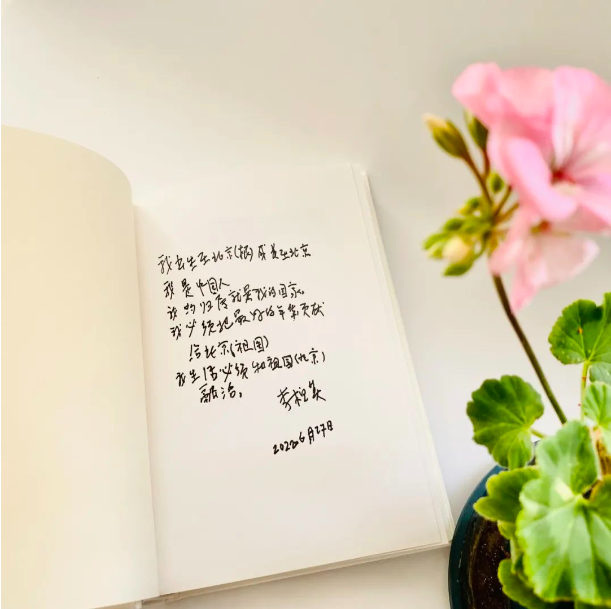 我出生在北京() 成长在北京
我是中国人
我的归属就是我的国家。
我必须把最好的年华贡献
给北京(祖国)
我生活必须和祖国(北京)
融洽。
2022年6月27日